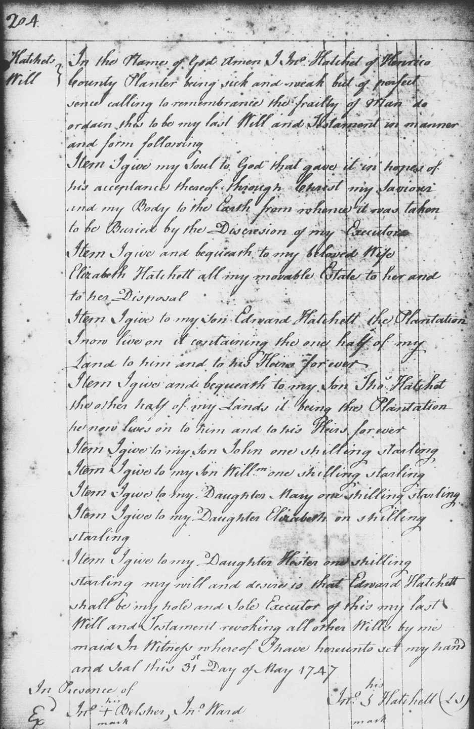 204
Hatchet
Will
In the Name of God Amen I Jno. Hatchet of Henrico
County Planter being sick and weak but of perfect
sence calling to remembrance the frailty of Man do
ordain this to be my last Will and Testament in manner
and form following
Item I give my Soul to God that gave it in hopes of
his acceptance thereof through Christ my Saviour
and my Body to the Earth from whence it was taken
to be Buried by the Discresion of my Executors
Item I give and bequeath to my beloved Wife
Elizabeth Hatchett all my movable Estate to her and
to her Disposal
Item I give to my Son Edward Hatchett the Plantation
I now live on it containing the one half of my
Land to him and to his Heirs for ever
Item I give and bequeath to my Son Tho.s Hatchet
the other half of my Lands it being the Plantation
he now lives on to him and to his Heirs for ever
Item I give to my Son John one shilling starling
Item I give to my Son Will.m one shilling starling
Item I give to my Daughter Mary one shilling starling
Item I give to my Daughter Elizabeth on shilling
starling
Item I give to my Daughter Hester one shilling
starling my will and desire is that Edward Hatchett
shall be my hole and Sole Executor of this my last
Will and Testament revoking all other Wills by me
maid In Witness whereof I have hereunto set my hand
and Seal this 31st Day of May 1747
In Presence of
his his
Ex.d Jno. + Belsher, Jno. Ward Jno. Hatchett (LS)
mark mark